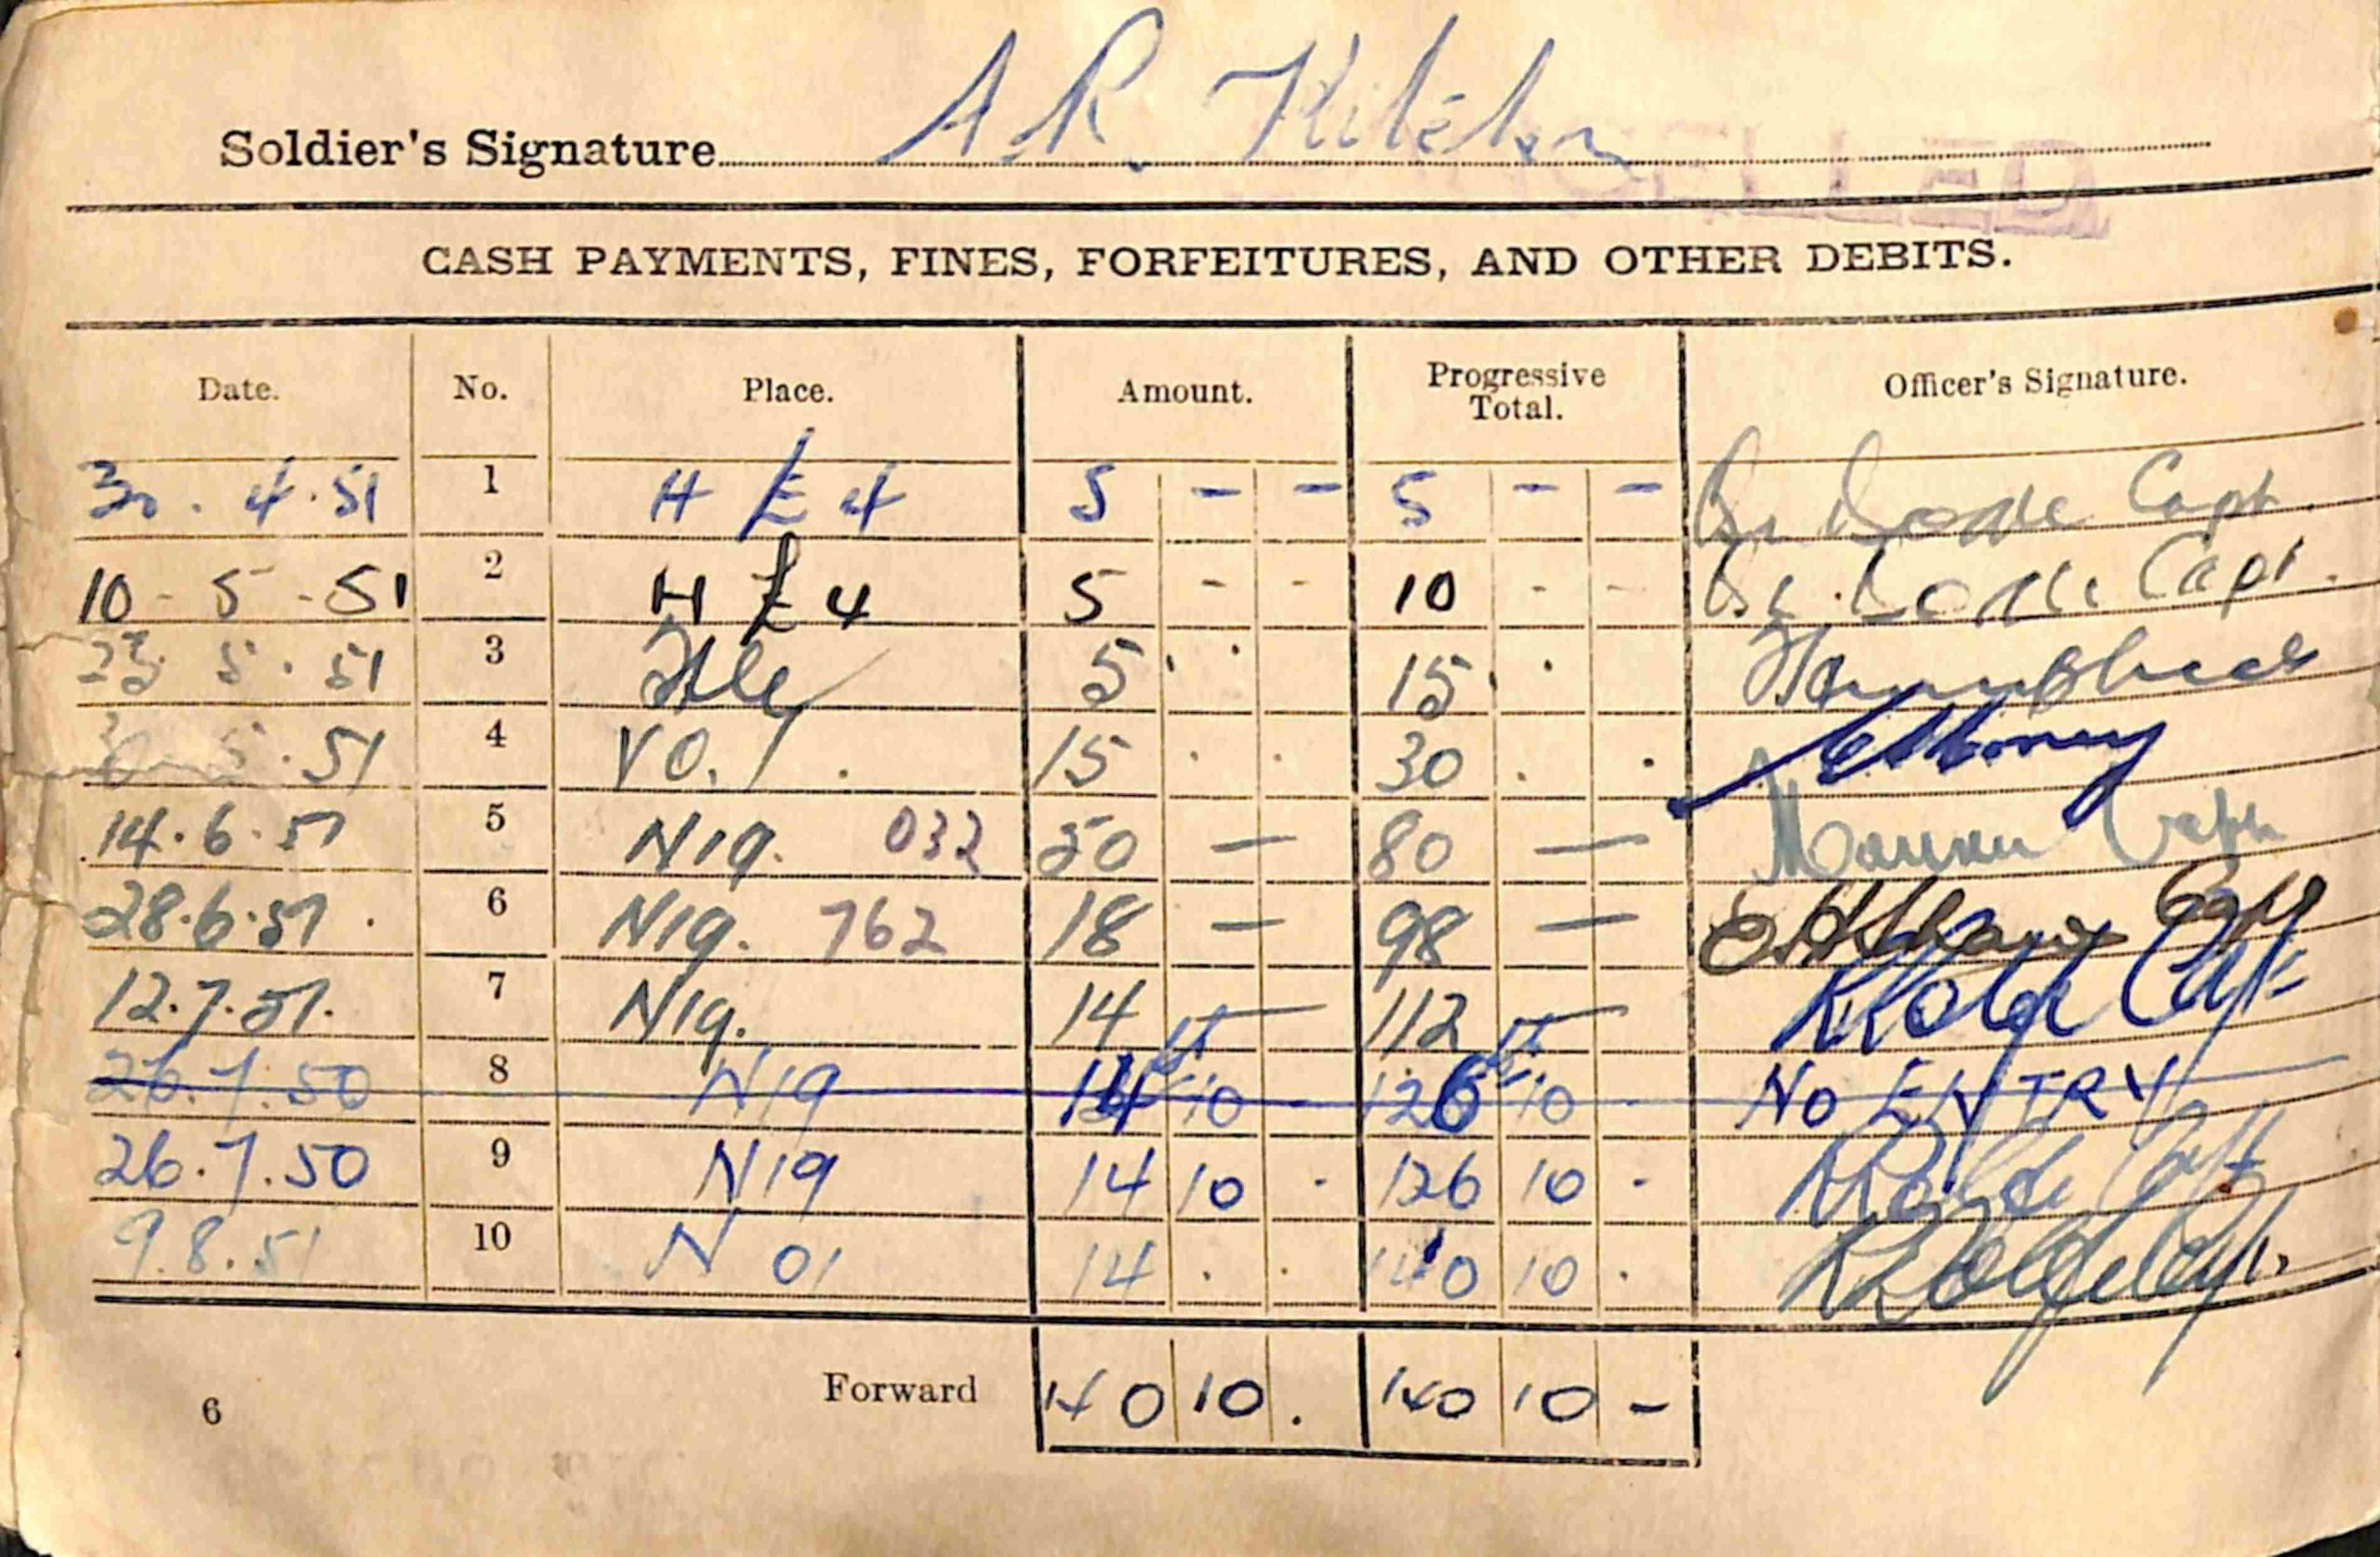 Soldier's Signature A R
CASH PAYMENTS, FINES, FORFEITURES, AND OTHER DEBITS.
Date. No. Place. Amount. Progressive Total. Officer's Signature.
30 . 4 . 51 1 H £ 4 5 - - 5 - - Capt.
10 - 5 - 51 2 H £ 4 5 - - 10 - - Capt.
5 . 51 3 5 . . 15 . .
5 . 51 4 VO.1 . 15 . . 30 . .
14.6.51 5 N19. 032 50 — 80 — Capt
28.6.51 . 6 N19. 762 18 — 98 — Capt
12.7.51. 7 N19. 14 — 112 — Capt
26.7.50 8 N19 14 10 - 126 10 . No ENTRY
26.7.50 9 N19 14 10 . 126 10 . Capt
9.8.51 10 N 01 14 . . 140 10 . Capt.
Forward 140 10 . 140 10 -
6